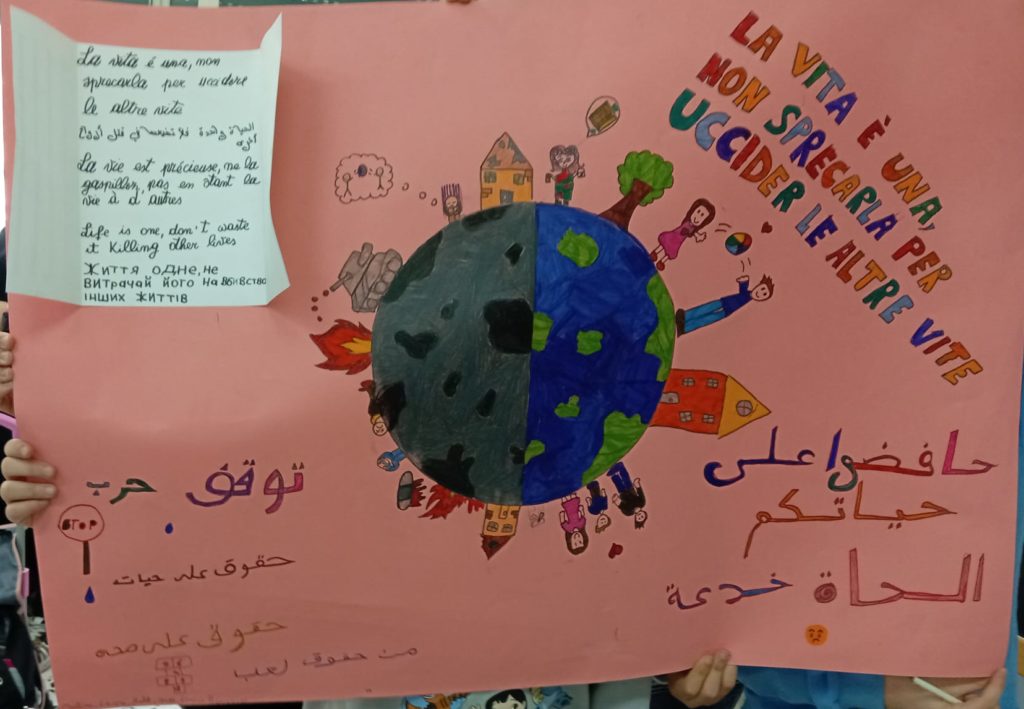 La vita é una, non
sprecarla per uccidere
le altre vite
الحياة واحدة فلا تضيعها في قتل أرواح
أخرى
La vie est précieuse, ne la
gaspillez pas en ôtant la
vie à d autres
Life is one, don't waste
it killing other lives
Життя одне, не
витрачай його на вбивство
інших життів
LA VITA È UNA,
NON SPRECARLA PER
UCCIDER LE ALTRE VITE
حافضوا على
حياتكم
الحاة خدعة
توقف حرب
STOP
حقوق على حيات
حقوق على صحه
من حقوق لعب